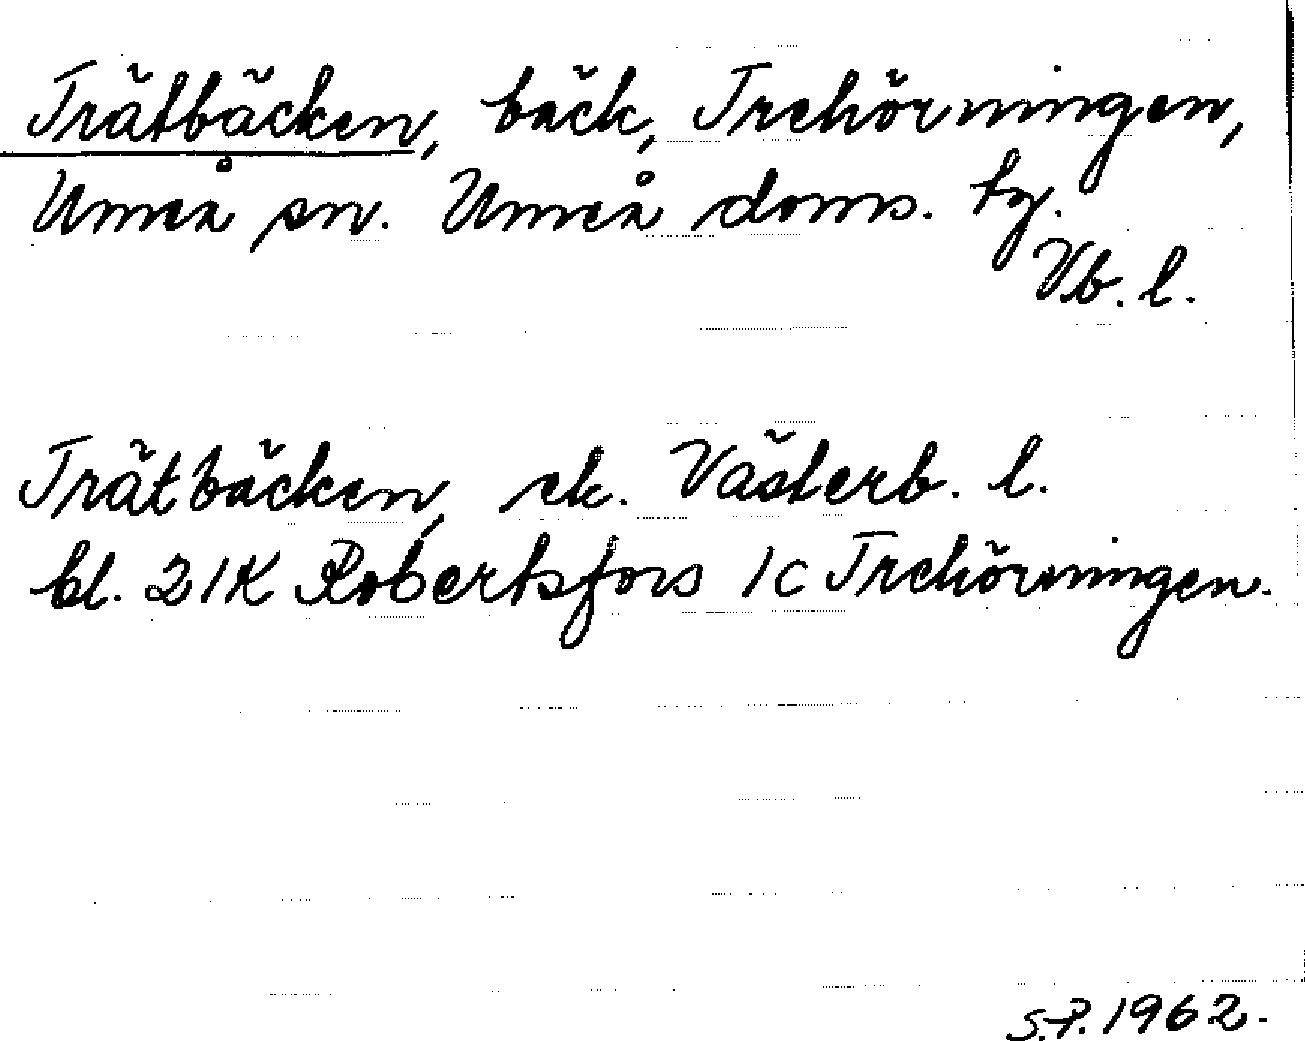 Trätbäcken, bäck, Trehörningen,
Umeå sn. Umeå doms. tg.
Vb. l.
Trätbäcken, ek. Västerb. l.
bl. 21K Robertsfors 1c Trehörningen.
S.P. 1962.